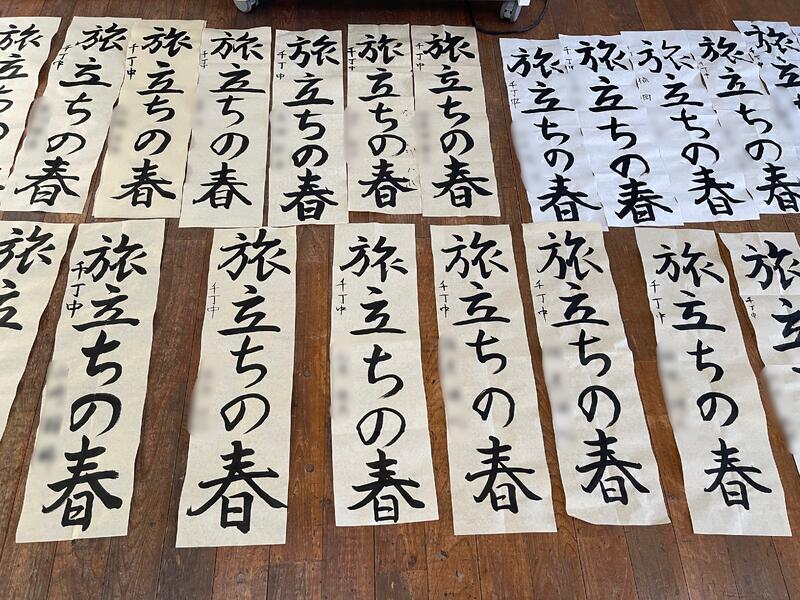 旅立ちの
旅立ちの春
千丁中
旅立ちの春
千丁中
旅立ちの春
千丁
旅立ちの春
千丁中
旅立ちの春
千丁中
旅立ちの春
千丁中
旅立ちの春
千丁中
旅立ちの春
千丁中
旅立ちの春
旅立ちの春
旅立ちの春
旅立
旅立ちの春
千丁中
旅立ちの春
千丁中
旅立ちの春
千丁中
旅立ちの春
千丁中
旅立ちの春
千丁中
旅立ちの春
千丁中
旅立
千丁中